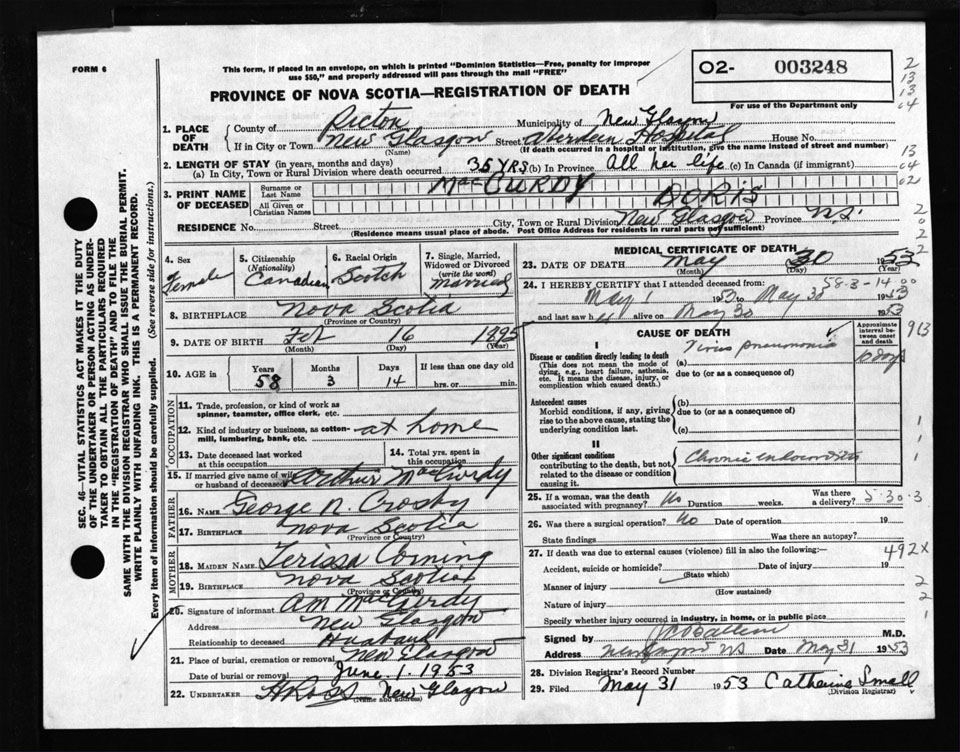 FORM 6
This form, if placed in an envelope, on which is printed "Dominion Statistics—Free, penalty for improper
use $50," and properly addressed will pass through the mail "FREE"
PROVINCE OF NOVA SCOTIA—REGISTRATION OF DEATH
O2- 003248
For use of the Department only
2
13
13
04
13
04
02
1. PLACE OF DEATH
County of Pictou Municipality of New Glasgow
If in City or Town New Glasgow Street Aberdeen Hospital House No.
(Name) (If death occurred in a hospital or institution, give the name instead of street and number)
2. LENGTH OF STAY (in years, months and days)
(a) In City, Town or Rural Division where death occurred 35 YRS (b) In Province All her life (c) In Canada (if immigrant)
3. PRINT NAME OF DECEASED
Surname or Last Name MacCURDY
All Given or Christian Names DORIS
RESIDENCE No. Street City, Town or Rural Division New Glasgow Province N.S.
(Residence means usual place of abode. Post Office Address for residents in rural parts not sufficient)
4. Sex Female
5. Citizenship (Nationality) Canadian
6. Racial Origin Scotch
7. Single, Married, Widowed or Divorced (write the word) Married
8. BIRTHPLACE Nova Scotia
(Province or Country)
9. DATE OF BIRTH Feb 16 1895
(Month) (Day) (Year)
10. AGE in Years 58 Months 3 Days 14 If less than one day old hrs. or min.
OCCUPATION
11. Trade, profession or kind of work as spinner, teamster, office clerk, etc.
12. Kind of industry or business, as cotton-mill, lumbering, bank, etc. at home
13. Date deceased last worked at this occupation
14. Total yrs. spent in this occupation
15. If married give name of wife or husband of deceased Arthur MacCurdy
FATHER
16. NAME George N. Crosby
17. BIRTHPLACE Nova Scotia
(Province or Country)
MOTHER
18. MAIDEN NAME Terissa Corning
19. BIRTHPLACE Nova Scotia
(Province or Country)
20. Signature of informant A M MacCurdy
Address New Glasgow
Relationship to deceased Husband
21. Place of burial, cremation or removal New Glasgow
Date of burial or removal June 1. 1953
22. UNDERTAKER New Glasgow
(Name and address)
MEDICAL CERTIFICATE OF DEATH
23. DATE OF DEATH May 30 1953
(Month) (Day) (Year)
58-3-14
24. I HEREBY CERTIFY that I attended deceased from:
May 1 1953 to May 30 1953
and last saw h alive on May 30 1953
CAUSE OF DEATH
Approximate interval between onset and death
I
Disease or condition directly leading to death
(This does not mean the mode of dying, e.g., heart failure, asthenia, etc. It means the disease, injury, or complication which caused death.)
(a) Virus pneumonia 10 days
due to (or as a consequence of)
Antecedent causes
Morbid conditions, if any, giving rise to the above cause, stating the underlying condition last.
(b)
due to (or as a consequence of)
(c)
II
Other significant conditions
contributing to the death, but not related to the disease or condition causing it.
Chronic endocarditis
25. If a woman, was the death associated with pregnancy? No Duration weeks. Was there a delivery?
5-30-3
26. Was there a surgical operation? No Date of operation 19
State findings Was there an autopsy?
27. If death was due to external causes (violence) fill in also the following:—
492X
Accident, suicide or homicide? Date of injury 19
(State which)
Manner of injury
(How sustained)
Nature of injury
Specify whether injury occurred in industry, in home, or in public place
Signed by M.D.
Address Date May 31 1953
28. Division Registrar's Record Number
29. Filed May 31 1953 Catherine Small
(Division Registrar)
SEC. 46—VITAL STATISTICS ACT MAKES IT THE DUTY
OF THE UNDERTAKER OR PERSON ACTING AS UNDER-
TAKER TO OBTAIN ALL THE PARTICULARS REQUIRED
IN THE "REGISTRATION OF DEATH" AND TO FILE THE
SAME WITH THE DIVISION REGISTRAR WHO SHALL ISSUE THE BURIAL PERMIT.
WRITE PLAINLY WITH UNFADING INK. THIS IS A PERMANENT RECORD.
Every item of information should be carefully supplied. (See reverse side for instructions.)